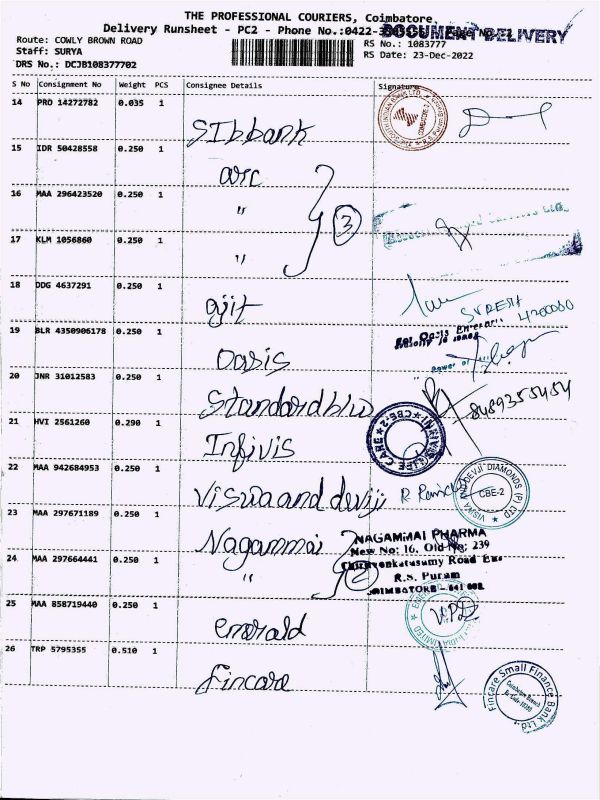 THE PROFESSIONAL COURIERS, Coimbatore.
Delivery Runsheet - PC2 - Phone No.:0422-
DOCUMENT DELIVERY
Route: COWLY BROWN ROAD
RS No.: 1083777
Staff: SURYA
RS Date: 23-Dec-2022
DRS No.: DCJB108377702
S No Consignment No Weight PCS Consignee Details Signature
14 PRO 14272782 0.035 1 SIbbank
15 IDR 50428558 0.250 1 arc
16 MAA 296423520 0.250 1 "
3
17 KLM 1056860 0.250 1 "
18 DDG 4637291 0.250 1 ajit
SURESH
4200060
19 BLR 4350906178 0.250 1 Oasis
For Oasis
Power of
20 JNR 31012583 0.250 1 Standard
8489355454
21 HVI 2561260 0.290 1 Infivis
LIFE CARE * CBE-2 *
22 MAA 942684953 0.250 1 Viswa and devji
R.
DEVJI DIAMONDS (P) LTD
CBE-2
23 MAA 297671189 0.250 1 Nagammai
NAGAMMAI PHARMA
New No: 16, Old No: 239
24 MAA 297664441 0.250 1 "
2
Thiruvenkatasamy Road East
R.S. Puram
COIMBATORE - 641 002.
25 MAA 858719440 0.250 1 emerald
26 TRP 5795355 0.510 1 Fincare
Fincare Small Finance Bank Ltd.
Coimbatore Branch